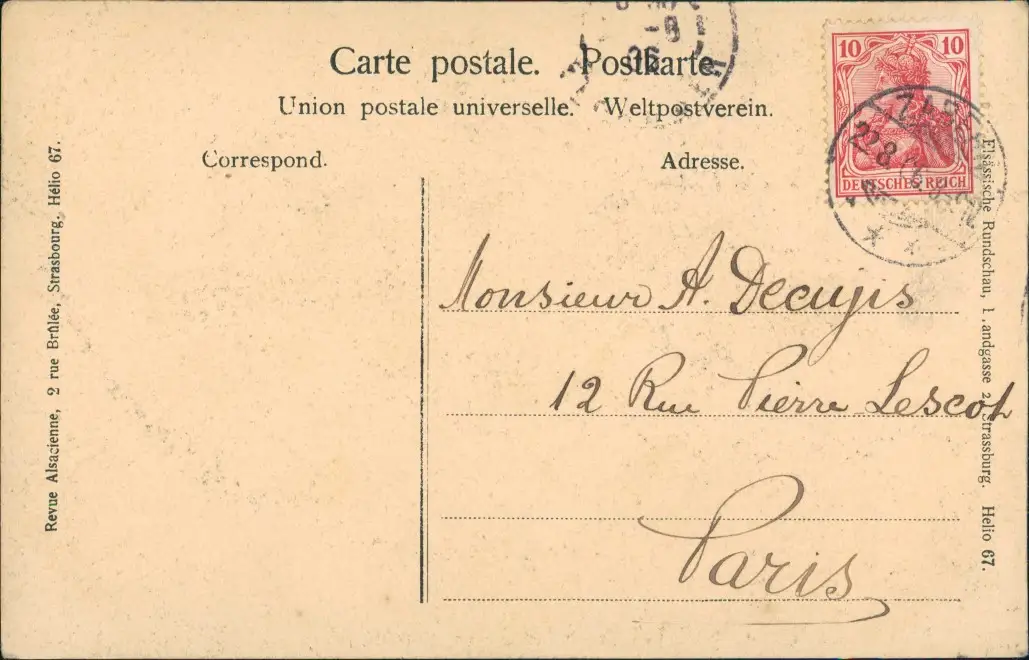 Carte postale. Postkarte.
Union postale universelle. Weltpostverein.
Correspond. Adresse.
10 10
DEUTSCHES REICH
22.8.
Monsieur A. Decugis
12 Rue Pierre Lescot
Paris
Revue Alsacienne, 2 rue Brûlée, Strasbourg. Hélio 67.
Elsässische Rundschau, Landgasse 2 Strassburg. Helio 67.